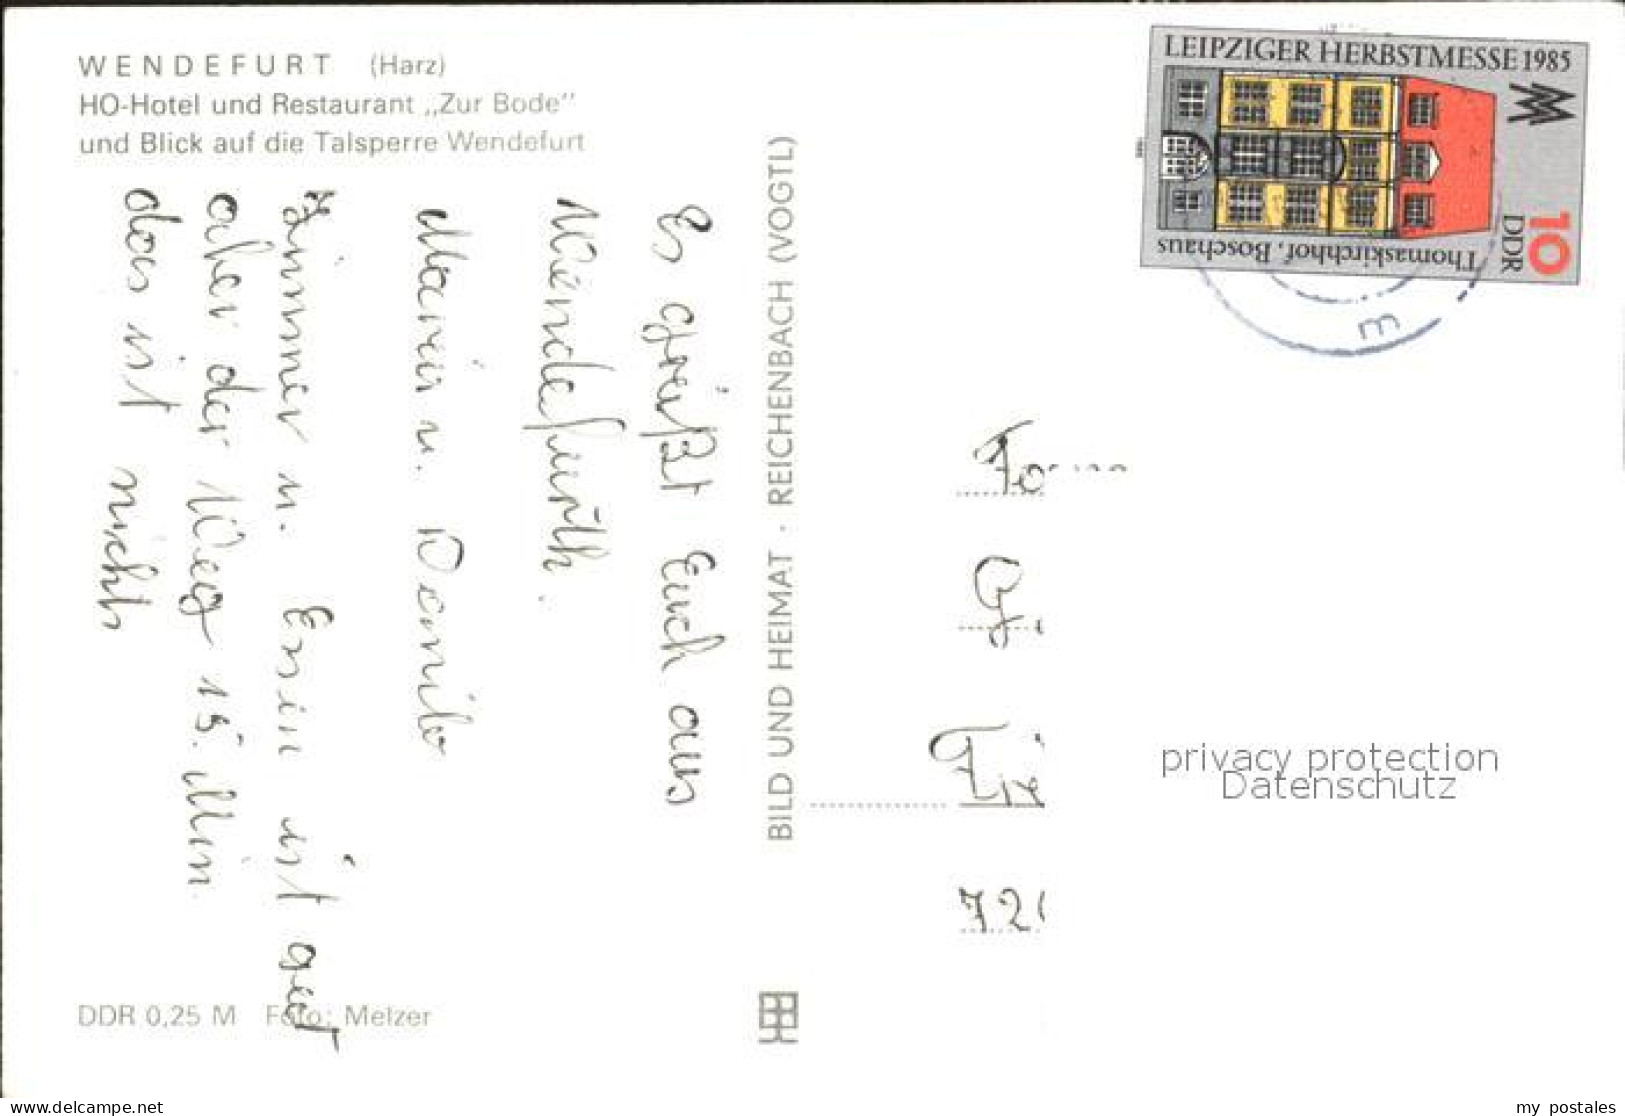 WENDEFURT (Harz)
HO-Hotel und Restaurant „Zur Bode"
und Blick auf die Talsperre Wendefurt
Es grüßt Euch aus
Wendefurth.
Maria u. Danilo
Zimmer u. Essen ist gut
aber der Weg 15 Min.
das ist nichts
DDR 0,25 M Foto: Melzer
BILD UND HEIMAT · REICHENBACH (VOGTL)
LEIPZIGER HERBSTMESSE 1985
Thomaskirchhof, Boschaus
DDR
10
m
72
privacy protection
Datenschutz
Posted to delcampe.net by
my_postales